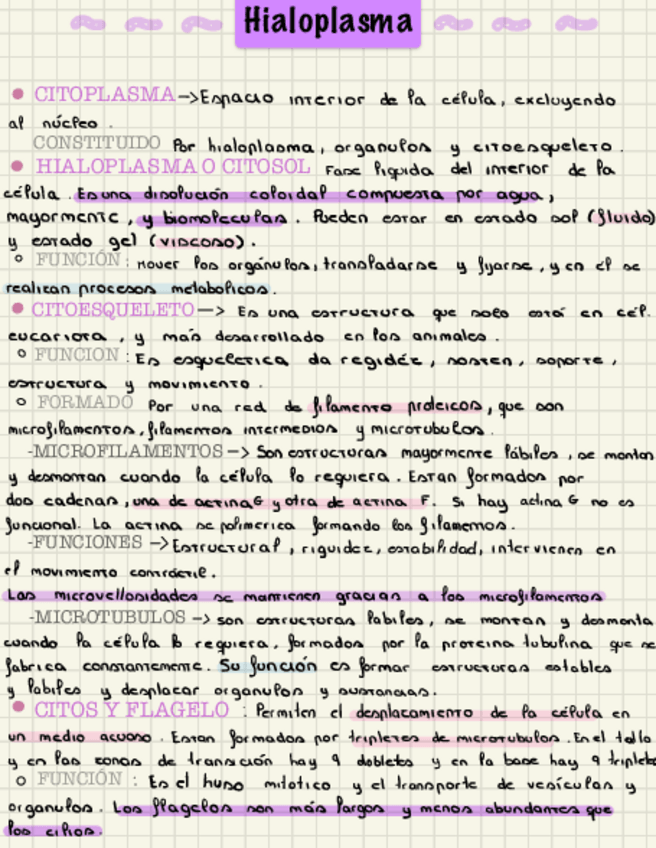 Hialoplasma
CITOPLASMA->Espacio interior de la célula, excluyendo
al núcleo.
CONSTITUIDO Por hialoplasma, organulos y citoesqueleto.
HIALOPLASMA O CITOSOL Fase liquida del interior de la
célula. Es una disolución coloidal compuesta por agua,
mayormente, y biomoleculas. Pueden estar en estado sol (fluido)
y estado gel (viscoso).
FUNCIÓN: mover los orgánulos, transladarse y fijarse, y en él se
realizan procesos metabolicos.
CITOESQUELETO-> Es una estructura que solo está en cél.
eucariota, y más desarrollado en los animales.
FUNCION: Es esqueletica da regidéz, sosten, soporte,
estructura y movimiento.
FORMADO Por una red de filamento proteicos, que son
microfilamentos, filamentos intermedios y microtubulos.
-MICROFILAMENTOS-> Son estructuras mayormente lábiles, se montan
y desmontan cuando la célula lo requiera. Estan formados por
dos cadenas, una de actina G y otra de actina F. Si hay actina G no es
funcional. La actina se polimerica formando los filamemos.
-FUNCIONES ->Estructural, riguidez, estabilidad, intervienen en
el movimiento contráctil.
Las microvellosidades se mantienen gracias a los microfilamentos
-MICROTUBULOS -> son estructuras labiles, se montan y desmonta
cuando la célula lo requiera, formados por la proteina tubulina que se
fabrica constantemente. Su función es formar estructuras estables
y labiles y desplacar organulos y sustancias.
CITOS Y FLAGELO : Permiten el desplacamiento de la célula en
un medio acuoso. Estan formados por tripletes de microtubulos. En el tallo
y en las zonas de transición hay 9 dobletes y en la base hay 9 triplete
FUNCIÓN : Es el huso mitotico y el transporte de vesículas y
organulos. Los flagelos son más largos y menos abundantes que
los cilios.